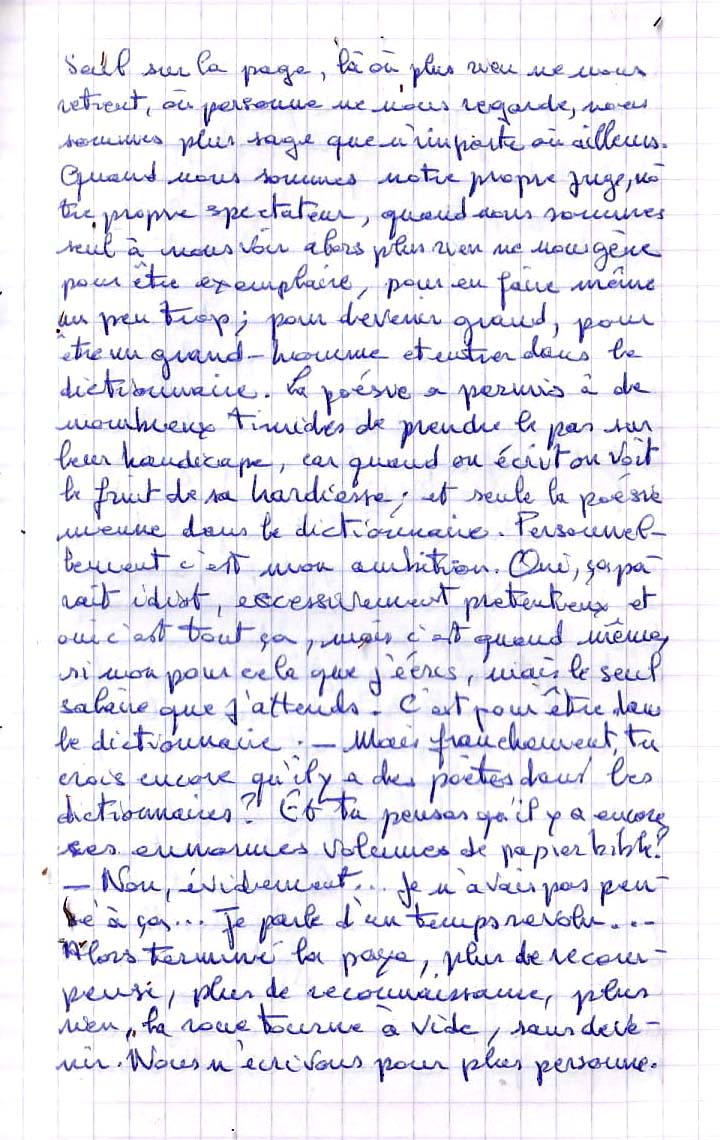 1
Seul sur la page, là où plus rien ne nous
retient, où personne ne nous regarde, nous
sommes plus sage que n'importe où ailleurs.
Quand nous sommes notre propre juge, no
tre propre spectateur, quand nous sommes
seul à nous voir alors plus rien ne nous gêne
pour être exemplaire, pour en faire même
un peu trop; pour devenir grand, pour
être un grand-homme et entrer dans le
dictionnaire. La poésie a permis à de
nombreux timides de prendre le pas sur
leur handicape, car quand on écrit on voit
le fruit de sa hardiesse; et seule la poésie
mène dans le dictionnaire. Personnel-
lement c'est mon ambition. Oui, ça pa-
rait idiot, excessivement prétentieux et
oui c'est tout ça, mais c'est quand même,
si non pour cela que j'écris, mais le seul
salaire que j'attends. C'est pour être dans
le dictionnaire. — Mais franchement, tu
crois encore qu'il y a des poètes dans les
dictionnaires? Et tu penses qu'il y a encore
ces ennormes volumes de papier bible?
— Non, évidement... Je n'avais pas pen-
sé à ça... Je parle d'un temps révolu...
Alors terminé la page, plus de recom-
pense, plus de reconnaissance, plus
rien, la roue tourne à vide, sans deve-
nir. Nous n'écrivons pour plus personne.